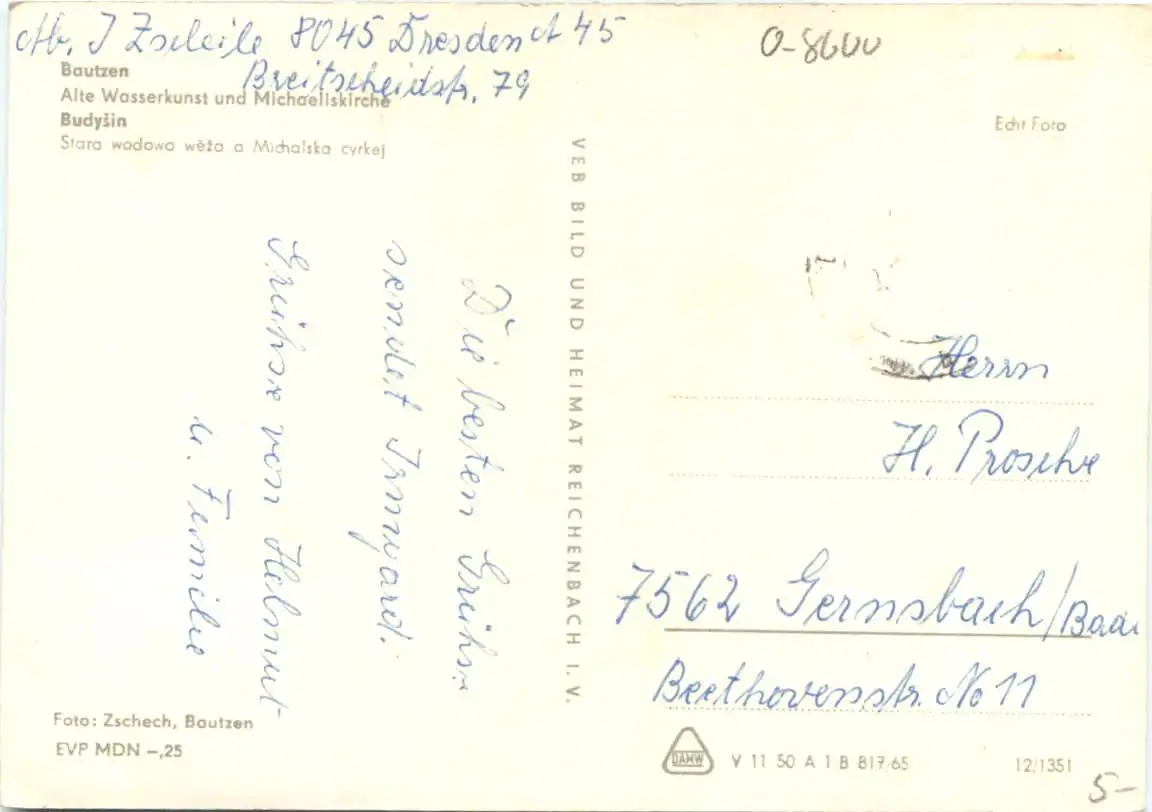 Ab. I Zscheile 8045 Dresden A 45
Breitscheidstr. 79
O-8600
Bautzen
Alte Wasserkunst und Michaeliskirche
Budyšin
Stara wodowa wěža a Michalska cyrkej
Echt Foto
Die besten Grühse
sendet Irmgard.
Grühse von Helmut
u. Familie
VEB BILD UND HEIMAT REICHENBACH I. V.
Herrn
H. Prosche
7562 Gernsbach/Baa
Beethovenstr. No 11
Foto: Zschech, Bautzen
EVP MDN –,25
DAMW
V 11 50 A 1 B 817/65
12/1351
5-